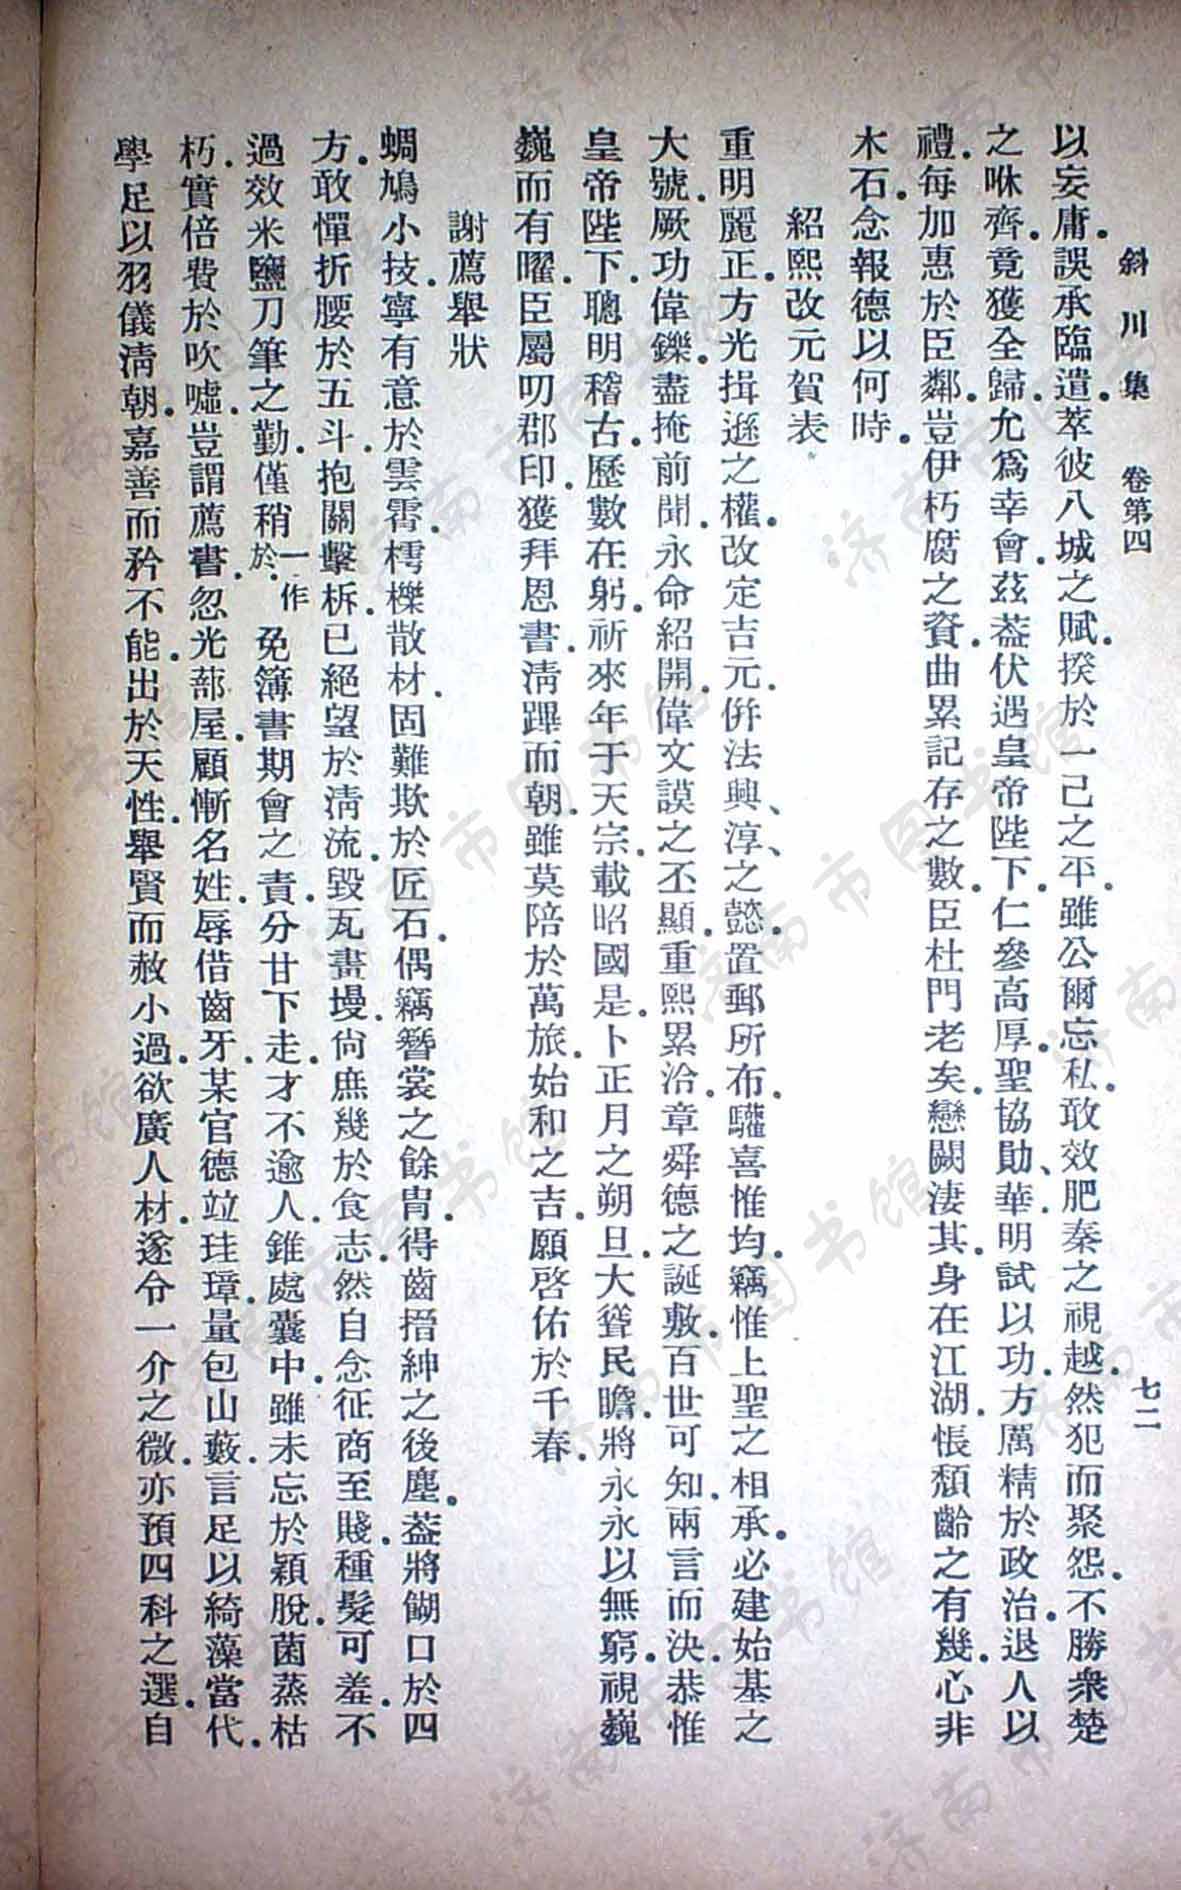 斜川集　卷第四　七二
以妄庸．誤承臨遣．萃彼八城之賦．揆於一己之平．雖公爾忘私．敢效肥秦之視越．然犯而聚怨．不勝衆楚
之咻齊．竟獲全歸．允爲幸會．茲葢伏遇皇帝陛下．仁參高厚．聖協勛、華．明試以功．方厲精於政治．退人以
禮．每加惠於臣鄰．豈伊朽腐之資．曲累記存之數．臣杜門老矣．戀闕淒其．身在江湖．悵頹齡之有幾．心非
木石．念報德以何時．
紹熙改元賀表
重明麗正．方光揖遜之權．改定吉元．併法興、淳之懿．置郵所布．驩喜惟均．竊惟上聖之相承．必建始基之
大號．厥功偉鑠．盡掩前聞．永命紹開．偉文謨之丕顯．重熙累洽．章舜德之誕敷．百世可知．兩言而決．恭惟
皇帝陛下．聰明稽古．歷數在躬．祈來年于天宗．載昭國是．卜正月之朔旦．大聳民瞻．將永永以無窮．視巍
巍而有曜．臣屬叨郡印．獲拜恩書．淸蹕而朝．雖莫陪於萬旅．始和之吉．願啓佑於千春．
謝薦舉狀
蜩鳩小技．寧有意於雲霄．樗櫟散材．固難欺於匠石．偶竊簪裳之餘冑．得齒搢紳之後塵．葢將餬口於四
方．敢憚折腰於五斗．抱關擊柝．已絕望於淸流．毀瓦畫墁．尙庶幾於食志．然自念征商至賤．種髮可羞．不
過效米鹽刀筆之勤．僅稍一作於．免簿書期會之責．分甘下走．才不逾人．錐處囊中．雖未忘於穎脫．菌蒸枯
朽．實倍費於吹噓．豈謂薦書．忽光蔀屋．顧慚名姓．辱借齒牙．某官德竝珪璋．量包山藪．言足以綺藻當代．
學足以羽儀淸朝．嘉善而矜不能．出於天性．舉賢而赦小過．欲廣人材．遂令一介之微．亦預四科之選．自